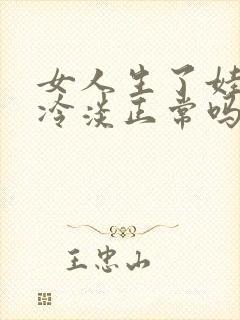 女人生了娃
冷淡正常吗
王忠山